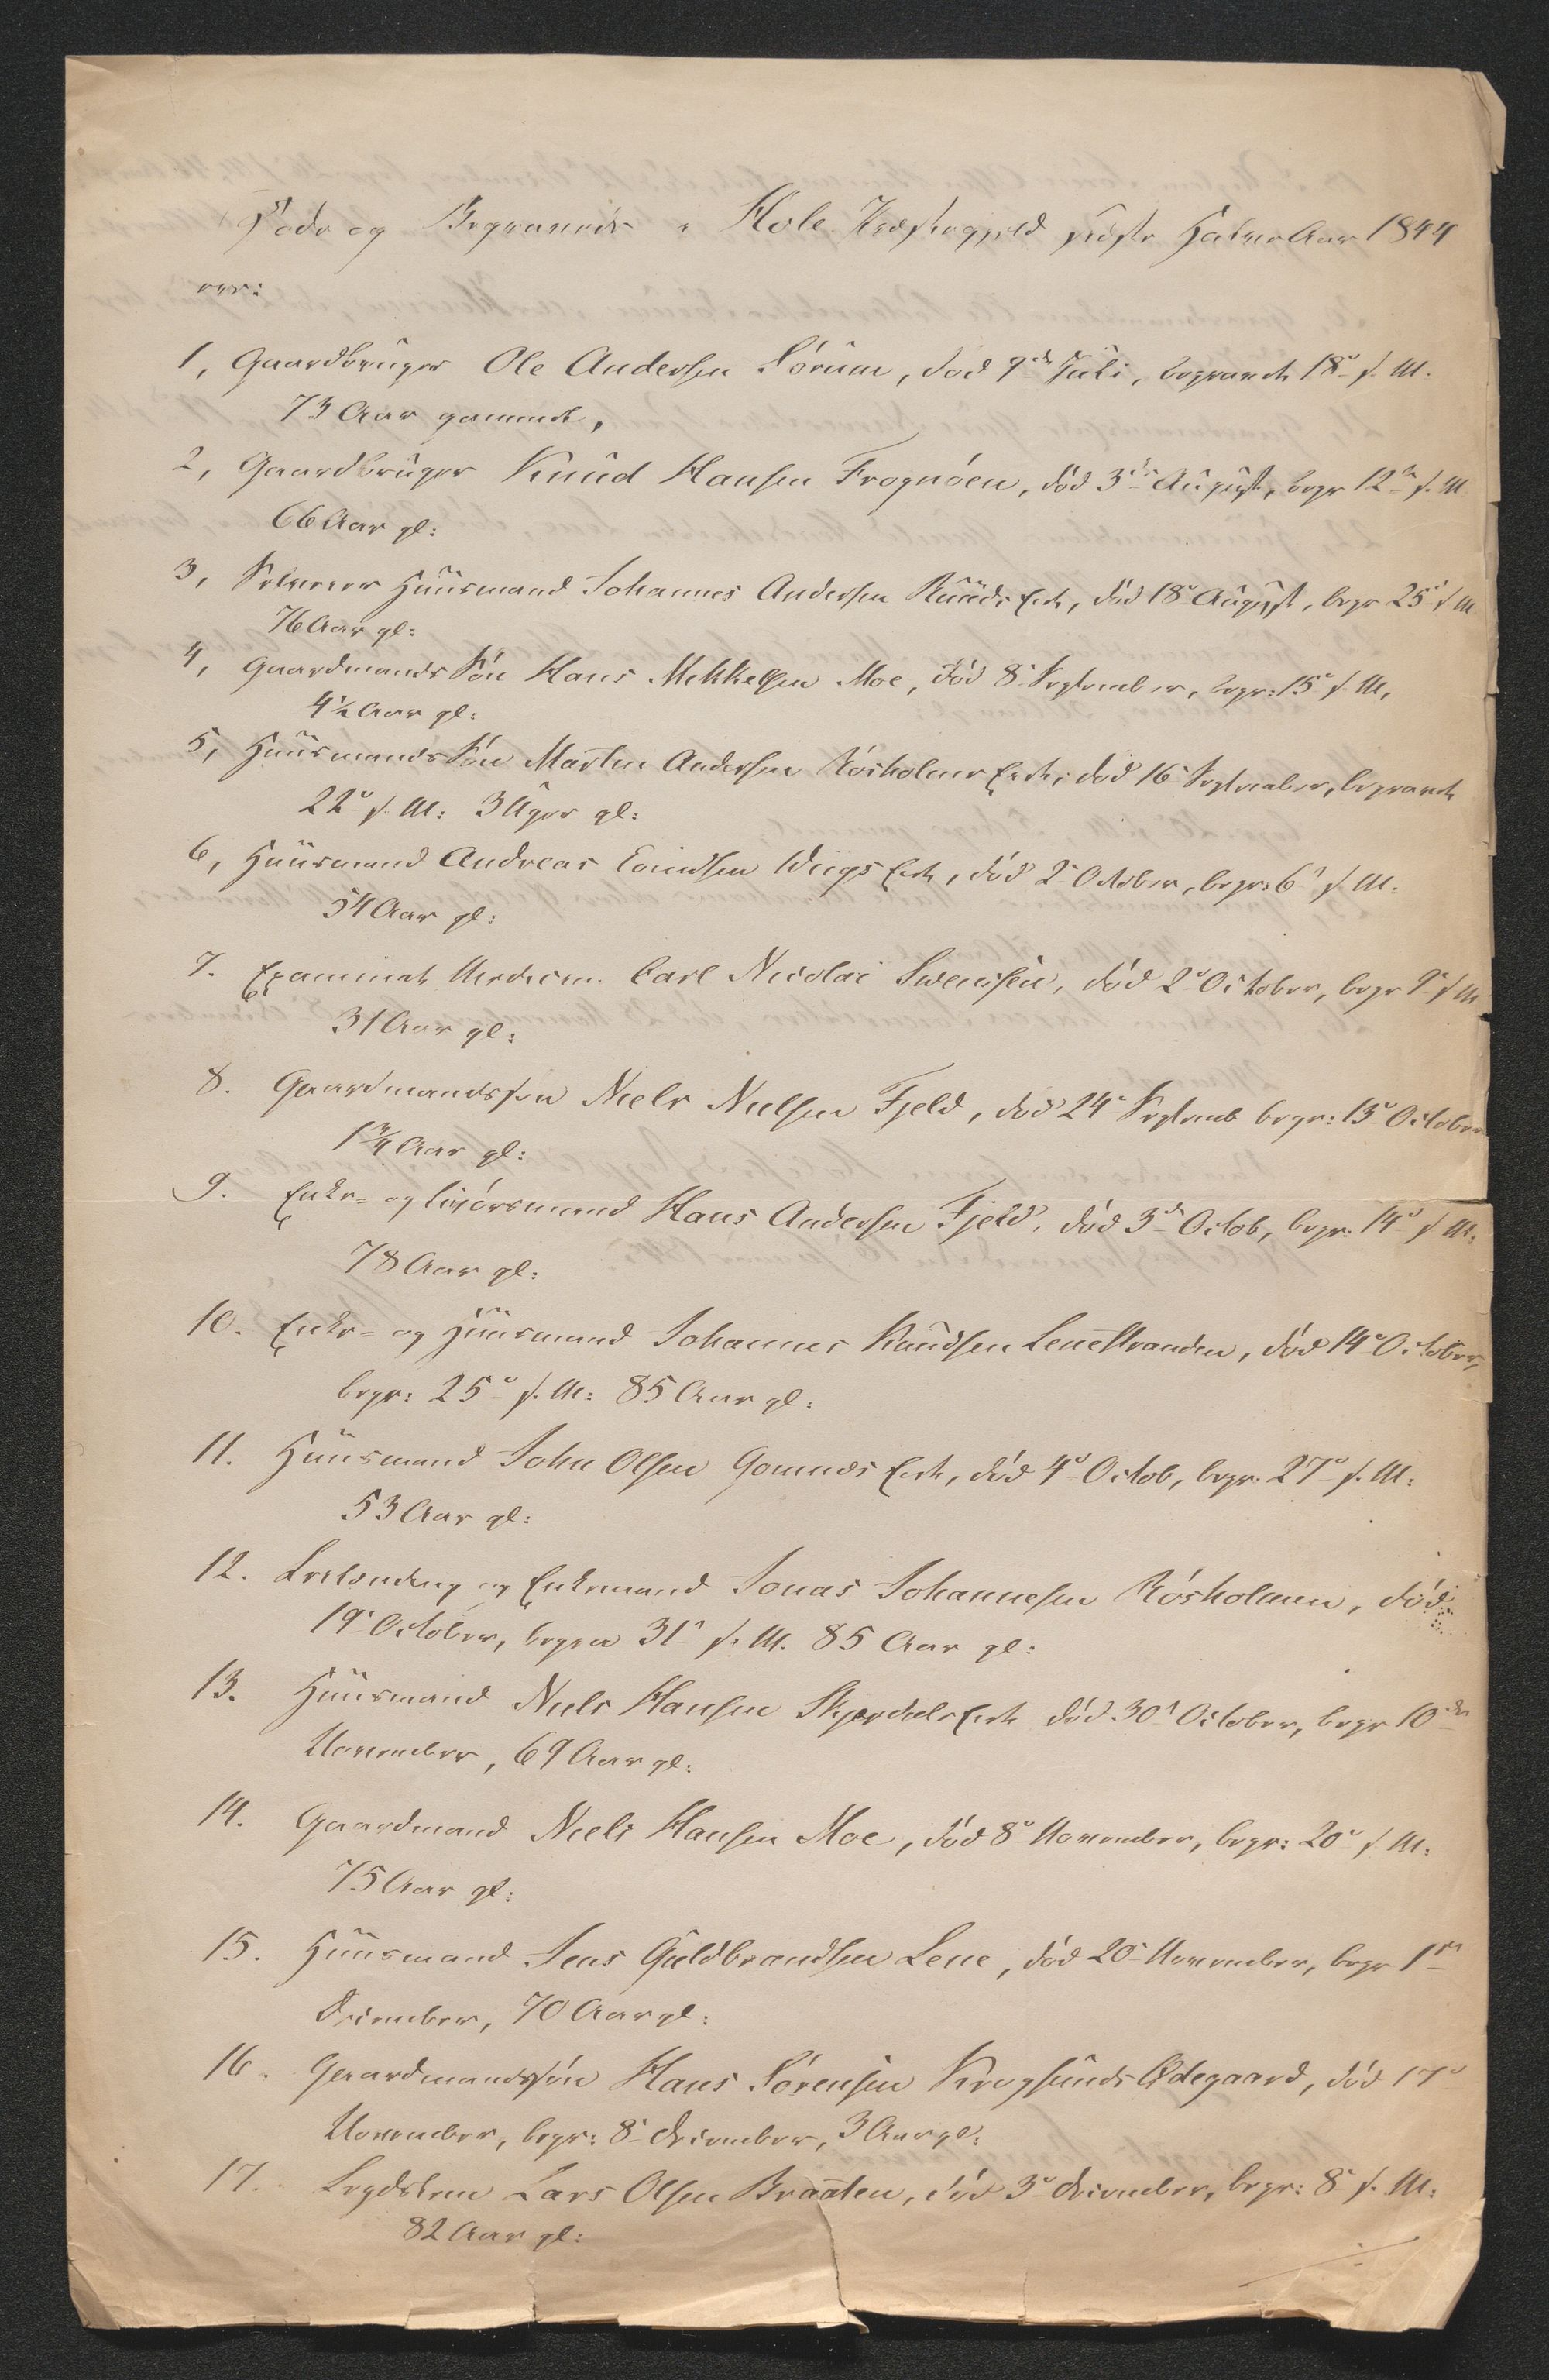 Døde og Begravede i Hole Præstegjeld sidste Halve Aar 1844
ere:
1, Gaardbruger Ole Andersen Sørum, død 9de Juli, begravet 18de s. M.
73 Aar gammel,
2, Gaardbruger Knud Hansen Frognøen, død 3die August, begr 12te s. M
66 Aar gl:
3, Huusmand Johannes Andersen Ruuds Eie, død 18de August, begr 25de s M
76 Aar gl:
4, Gaardmands Søn Hans Mikkelsen Moe, død 8de September, begr: 15de s M,
4½ Aar gl:
5, Huusmands Søn Martin Andersen Røsholmen Eie, død 16de September, begravet
22de s. M: 3 Uger gl:
6, Huusmand Andreas Eriksen Viigs Eie, død 2den October, begr: 6te s M.
54 Aar gl:
7. Examinat Medicin. Carl Nicolai Svensen, død 2den October, begr 9de s M
31 Aar gl:
8. Gaardmandssøn Niels Nielsen Fjeld, død 24de Septemb begr: 13de October
1¾ Aar gl:
9. Enke- og Hans Andersen Fjeld, død 3die Octob, begr. 14de s M:
78 Aar gl:
10. Enke- og Huusmand Johannes Knudsen Lenestranden, død 14de October,
begr: 25de s. M: 85 Aar gl:
11. Huusmand John Olsen Gomnes Eie, død 4de Octob, begr. 27de s. M:
53 Aar gl:
12. og Enkemand Jonas Johannesen Røsholmen, død
19de October, begra 31te s. M. 85 Aar gl:
13. Huusmand Niels Hansen Skjerdals Eie død 30te October, begr 10de
November, 69 Aar gl:
14. Gaardmand Niels Hansen Moe, død 8de November, begr: 20de s M:
75 Aar gl:
15. Huusmand Jens Guldbrandsen Lene, død 20de November, begr 1ste
December, 70 Aar gl:
16. Gaardmandssøn Hans Sørensen Krogsunds Ødegaard, død 17de
November, begr: 8de December, 3 Aar gl:
17. Lægdslem Lars Olsen Braaten, død 3die December, begr: 8de s. M:
82 Aar gl: